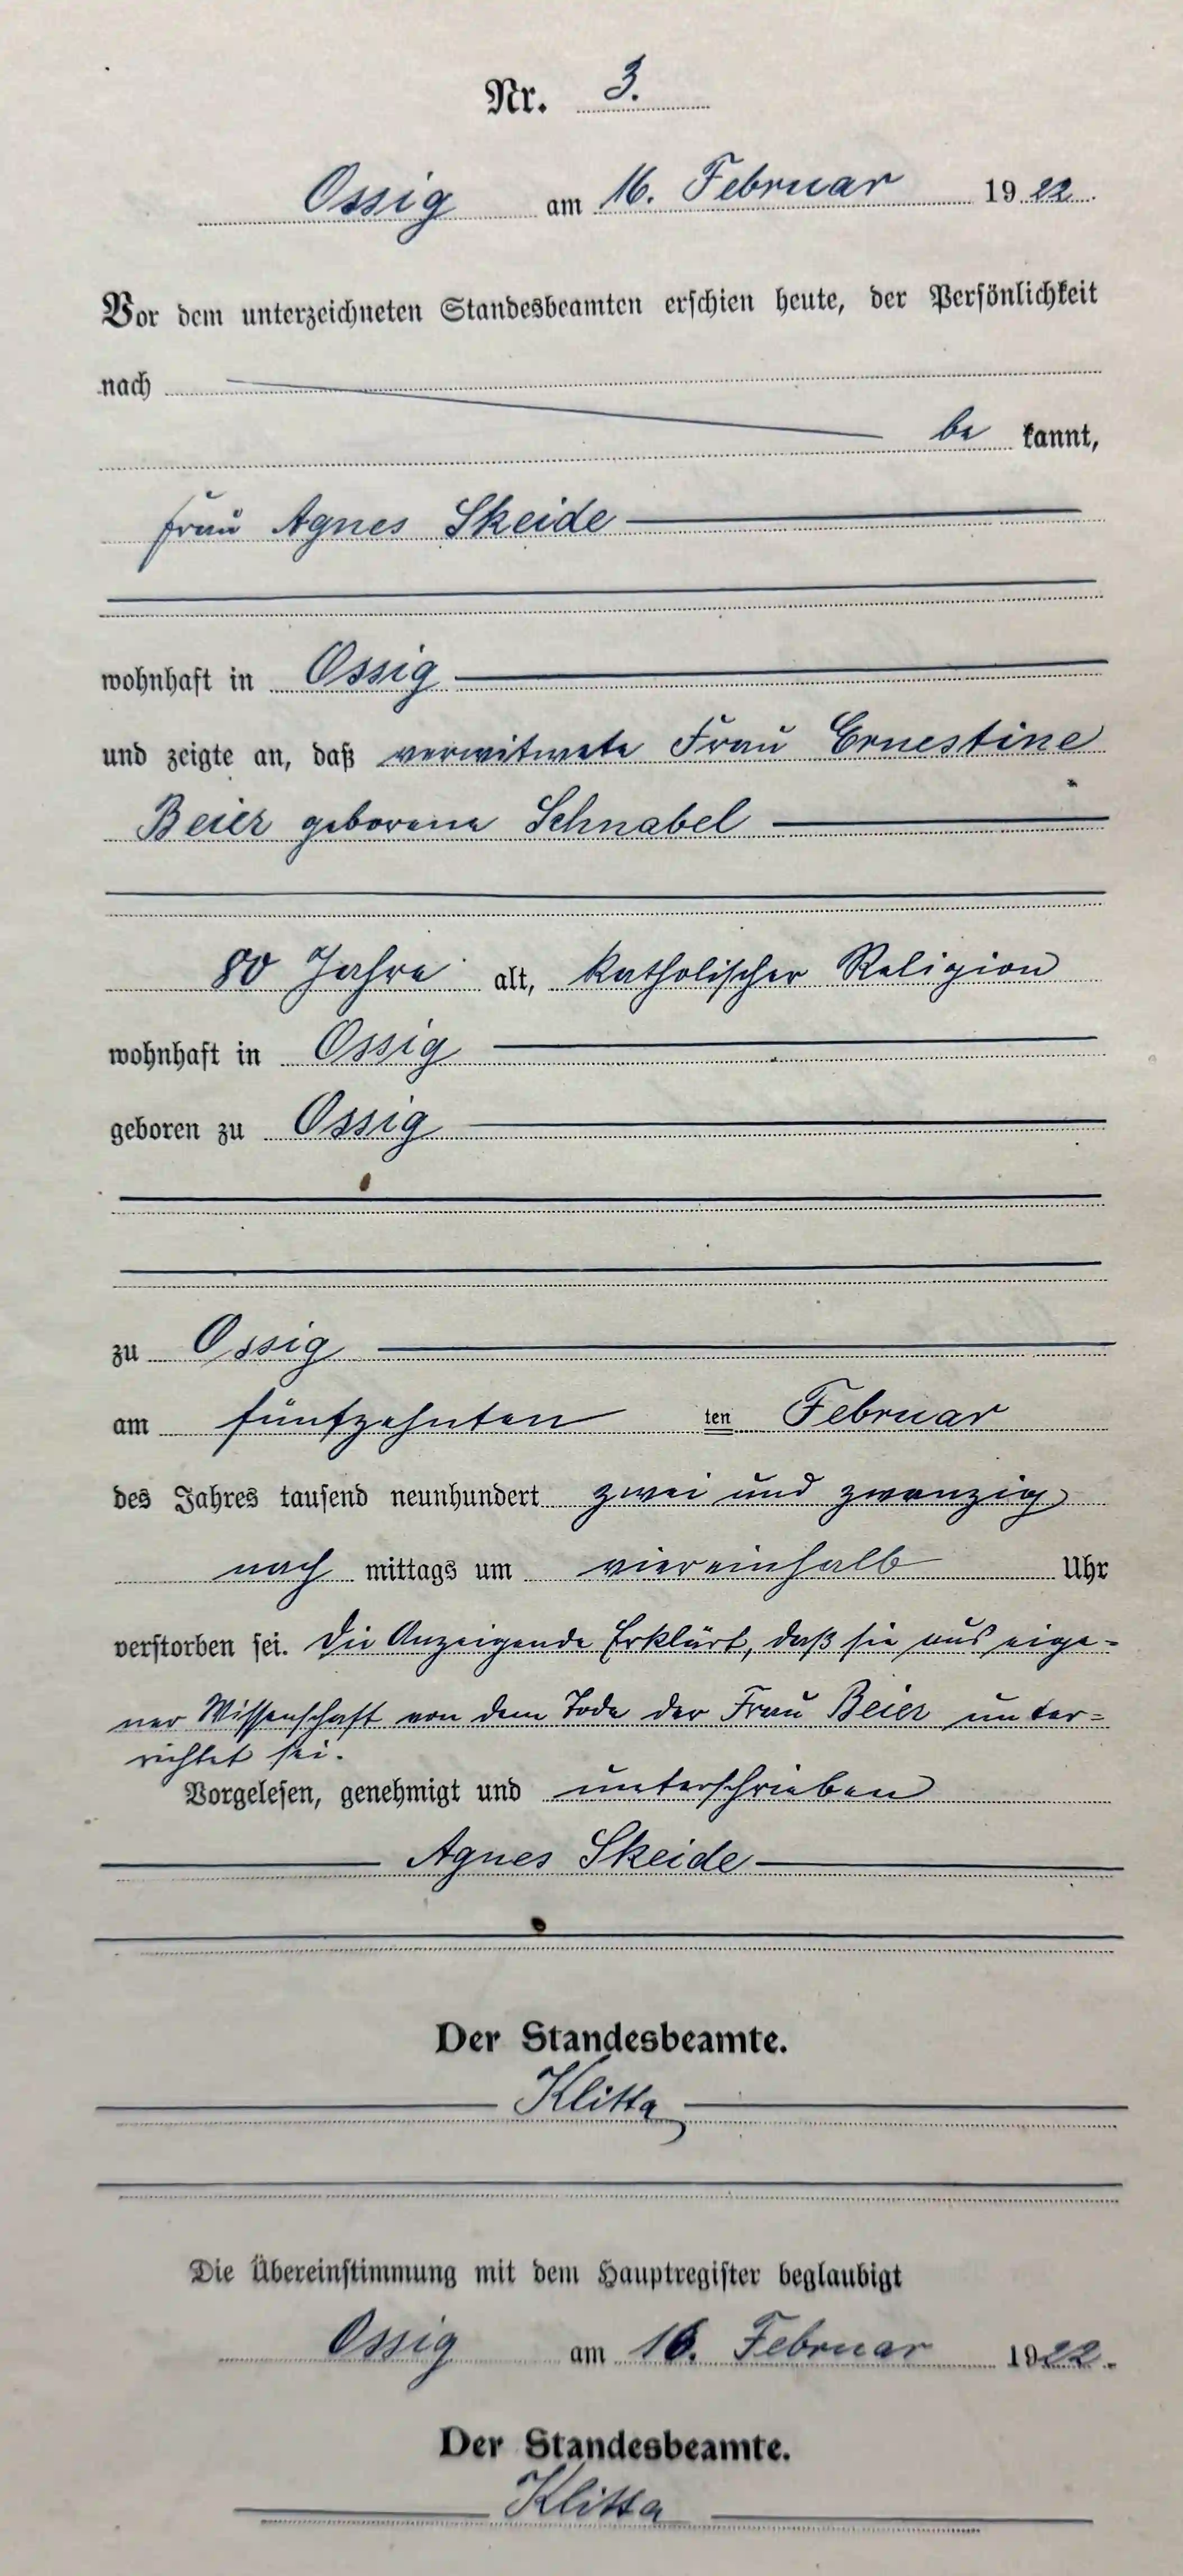 Nr. 3.
Ossig am 16. Februar 1922.
Vor dem unterzeichneten Standesbeamten erschien heute, der Persönlichkeit
nach
be kannt,
Frau Agnes Skeide
wohnhaft in Ossig
und zeigte an, daß verwitwete Frau Ernestine
Beier geborene Schnabel
80 Jahre alt, katholischer Religion
wohnhaft in Ossig
geboren zu Ossig
zu Ossig
am fünfzehnten ten Februar
des Jahres tausend neunhundert zwei und zwanzig
nach mittags um viereinhalb Uhr
verstorben sei. Die Anzeigende Erklärt, daß sie aus eige-
ner Wissenschaft von dem Tode der Frau Beier unter=
richtet sei.
Vorgelesen, genehmigt und unterschrieben
Agnes Skeide
Der Standesbeamte.
Klitta
Die Übereinstimmung mit dem Hauptregister beglaubigt
Ossig am 16. Februar 1922.
Der Standesbeamte.
Klitta